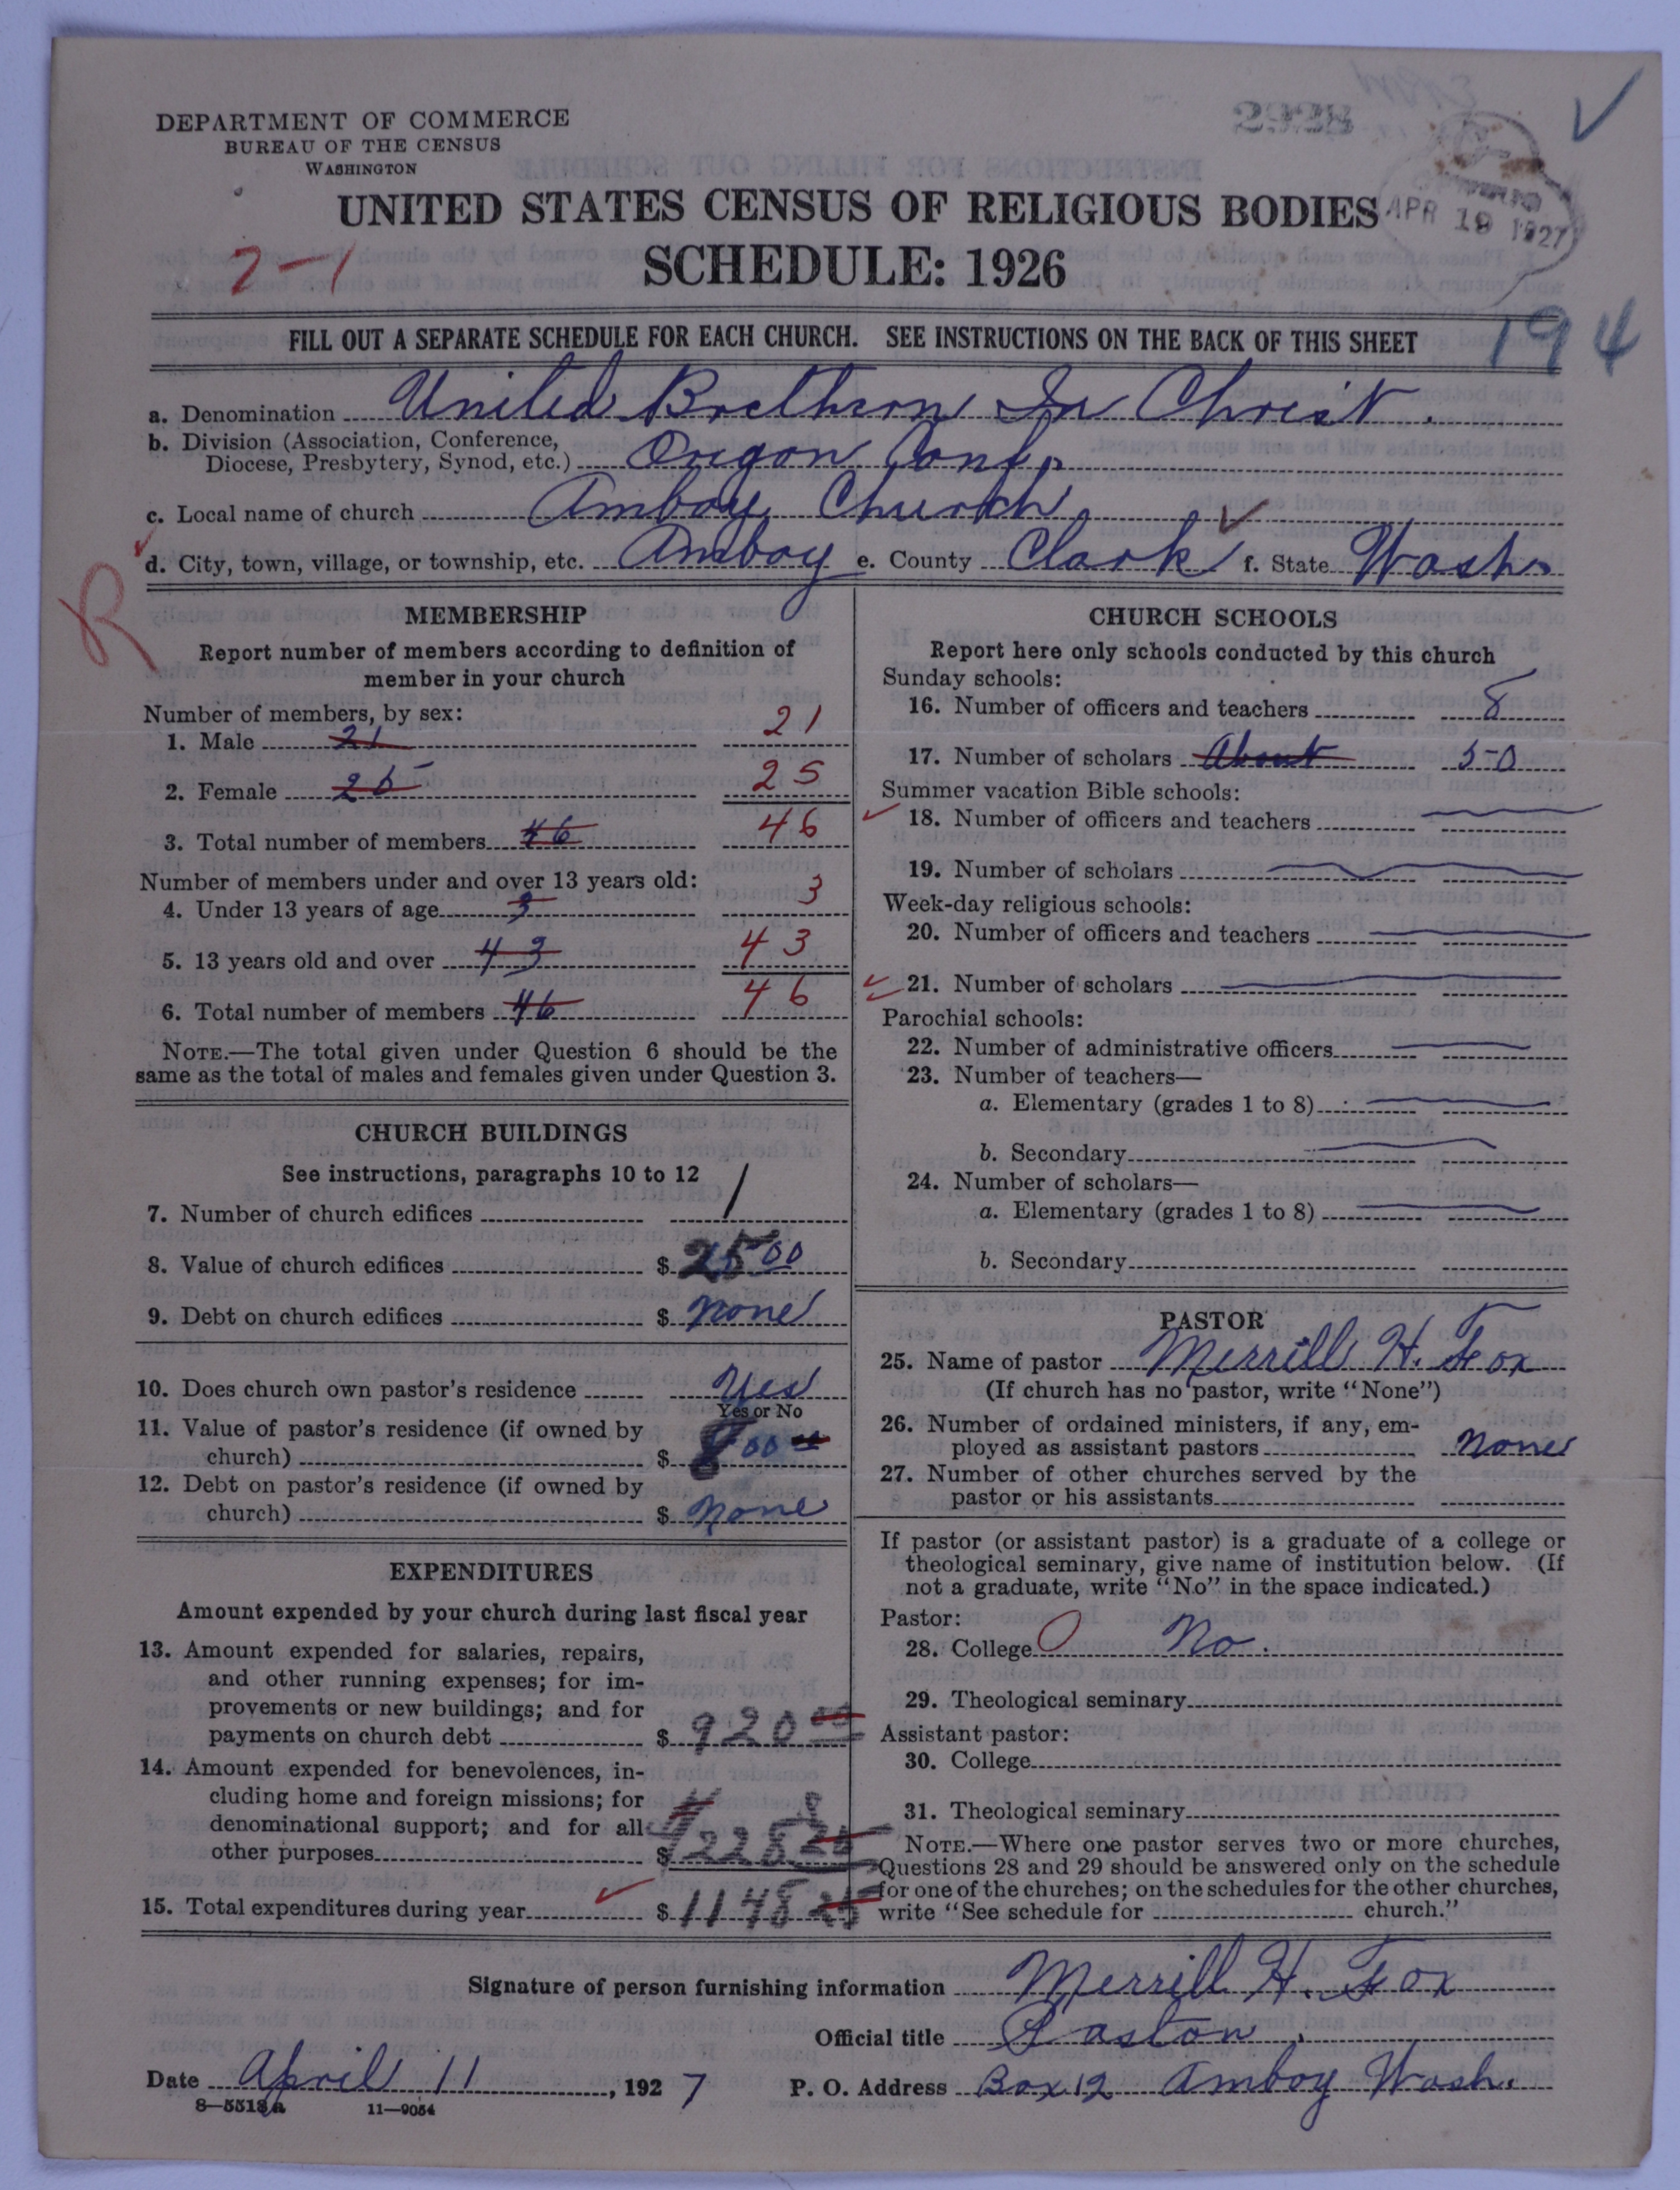 2928
DEPARTMENT OF COMMERCE
BUREAU OF THE CENSUS
WASHINGTON
UNITED STATES CENSUS OF RELIGIOUS BODIES
APR 19 1927
2-1
SCHEDULE: 1926
FILL OUT A SEPARATE SCHEDULE FOR EACH CHURCH. SEE INSTRUCTIONS ON THE BACK OF THIS SHEET
194
a. Denomination United Brethren In Christ.
b. Division (Association, Conference,
Diocese, Presbytery, Synod, etc.) Oregon Conf.
c. Local name of church Amboy Church
d. City, town, village, or township, etc. Amboy e. County Clark f. State Wash.
R
MEMBERSHIP
Report number of members according to definition of
member in your church
Number of members, by sex:
1. Male 21 21
2. Female 25 25
3. Total number of members 46 46
Number of members under and over 13 years old:
4. Under 13 years of age 3 3
5. 13 years old and over 43 43
6. Total number of members 46 46
NOTE.—The total given under Question 6 should be the
same as the total of males and females given under Question 3.
CHURCH BUILDINGS
See instructions, paragraphs 10 to 12
7. Number of church edifices 1
8. Value of church edifices $ 2500
9. Debt on church edifices $ none
10. Does church own pastor's residence Yes
Yes or No
11. Value of pastor's residence (if owned by
church) $ 800
12. Debt on pastor's residence (if owned by
church) $ none
EXPENDITURES
Amount expended by your church during last fiscal year
13. Amount expended for salaries, repairs,
and other running expenses; for im-
provements or new buildings; and for
payments on church debt $ 920 00
14. Amount expended for benevolences, in-
cluding home and foreign missions; for
denominational support; and for all
other purposes $ 228 25
15. Total expenditures during year $ 1148 25
CHURCH SCHOOLS
Report here only schools conducted by this church
Sunday schools:
16. Number of officers and teachers 8
17. Number of scholars About 50
Summer vacation Bible schools:
18. Number of officers and teachers
19. Number of scholars
Week-day religious schools:
20. Number of officers and teachers
21. Number of scholars
Parochial schools:
22. Number of administrative officers
23. Number of teachers—
a. Elementary (grades 1 to 8)
b. Secondary
24. Number of scholars—
a. Elementary (grades 1 to 8)
b. Secondary
PASTOR
25. Name of pastor Merrill H. Fox
(If church has no pastor, write "None")
26. Number of ordained ministers, if any, em-
ployed as assistant pastors none
27. Number of other churches served by the
pastor or his assistants
If pastor (or assistant pastor) is a graduate of a college or
theological seminary, give name of institution below. (If
not a graduate, write "No" in the space indicated.)
Pastor:
28. College No.
29. Theological seminary
Assistant pastor:
30. College
31. Theological seminary
NOTE.—Where one pastor serves two or more churches,
Questions 28 and 29 should be answered only on the schedule
for one of the churches; on the schedules for the other churches,
write "See schedule for church."
Signature of person furnishing information Merrill H. Fox
Official title Pastor.
Date April 11, 1927 P. O. Address Box 12 Amboy Wash.
8—5518a 11—9054